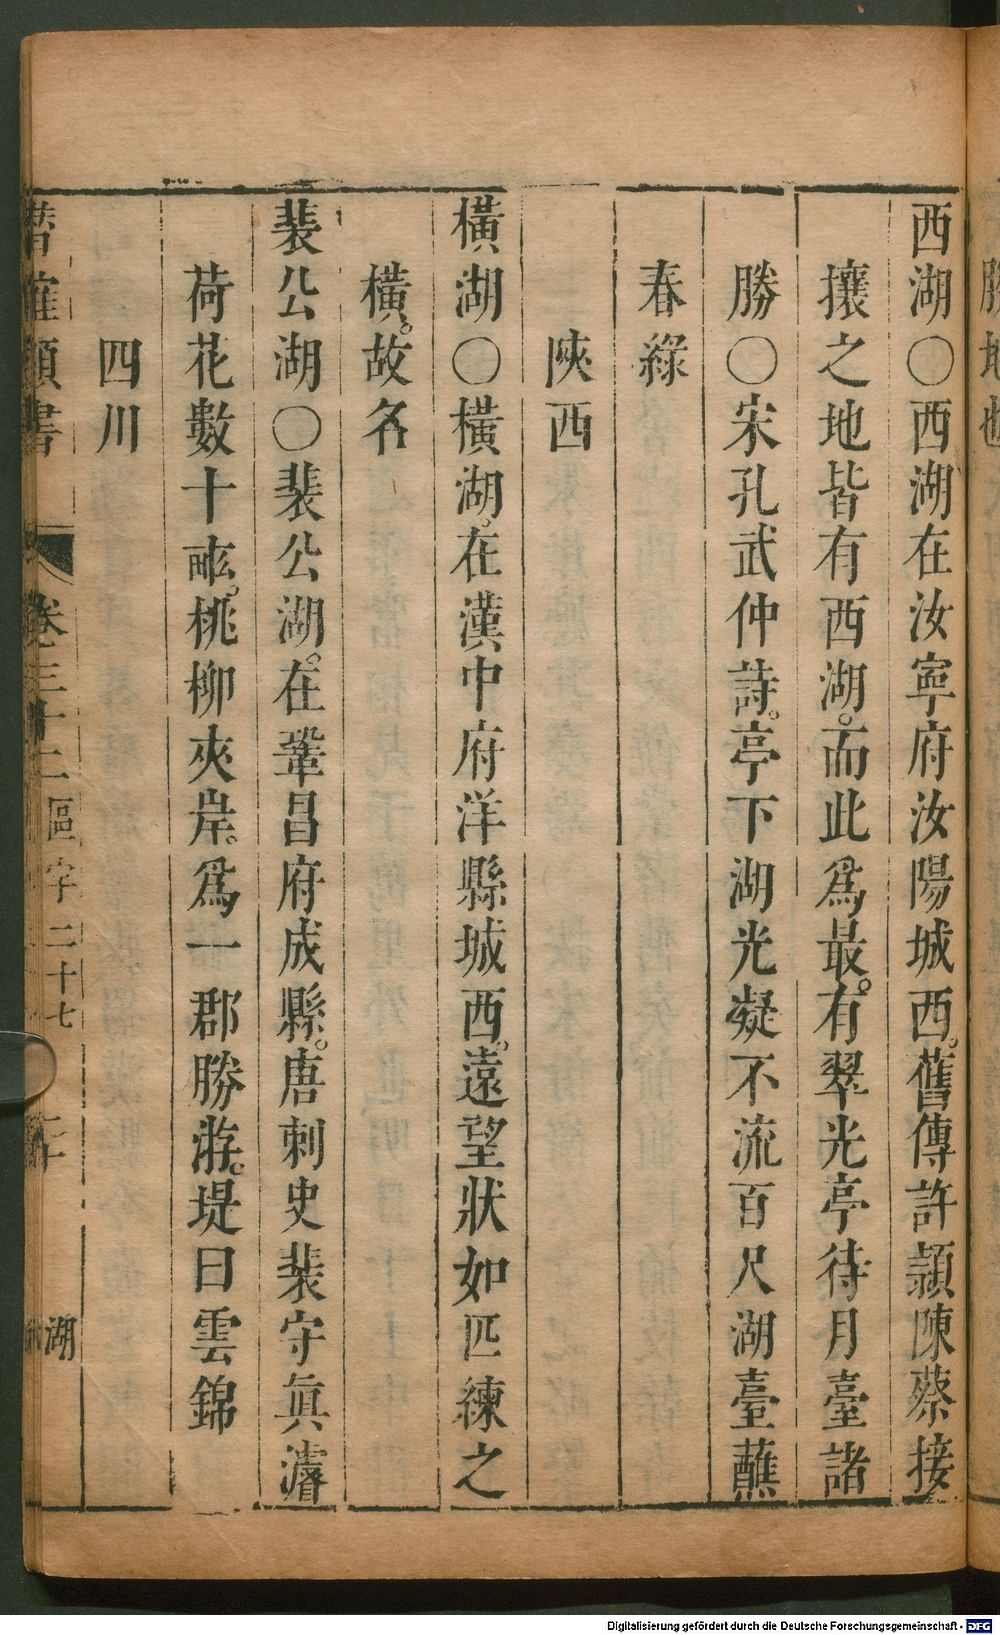 勝地也
西湖〇西湖在汝寧府汝陽城西。舊傳許潁陳蔡接
攘之地皆有西湖。而此爲最。有翠光亭待月臺諸
勝〇宋孔武仲詩。亭下湖光凝不流百尺湖臺蘸
春綠
陝西
橫湖〇橫湖。在漢中府洋縣城西。遠望狀如匹練之
橫。故名
裴公湖〇裴公湖。在鞏昌府成縣。唐刺史裴守眞濬
荷花數十畝。桃柳夾岸。爲一郡勝游。堤曰雲錦
四川
卷三十二 區字二十七 湖
Digitalisierung gefördert durch die Deutsche Forschungsgemeinschaft - DFG